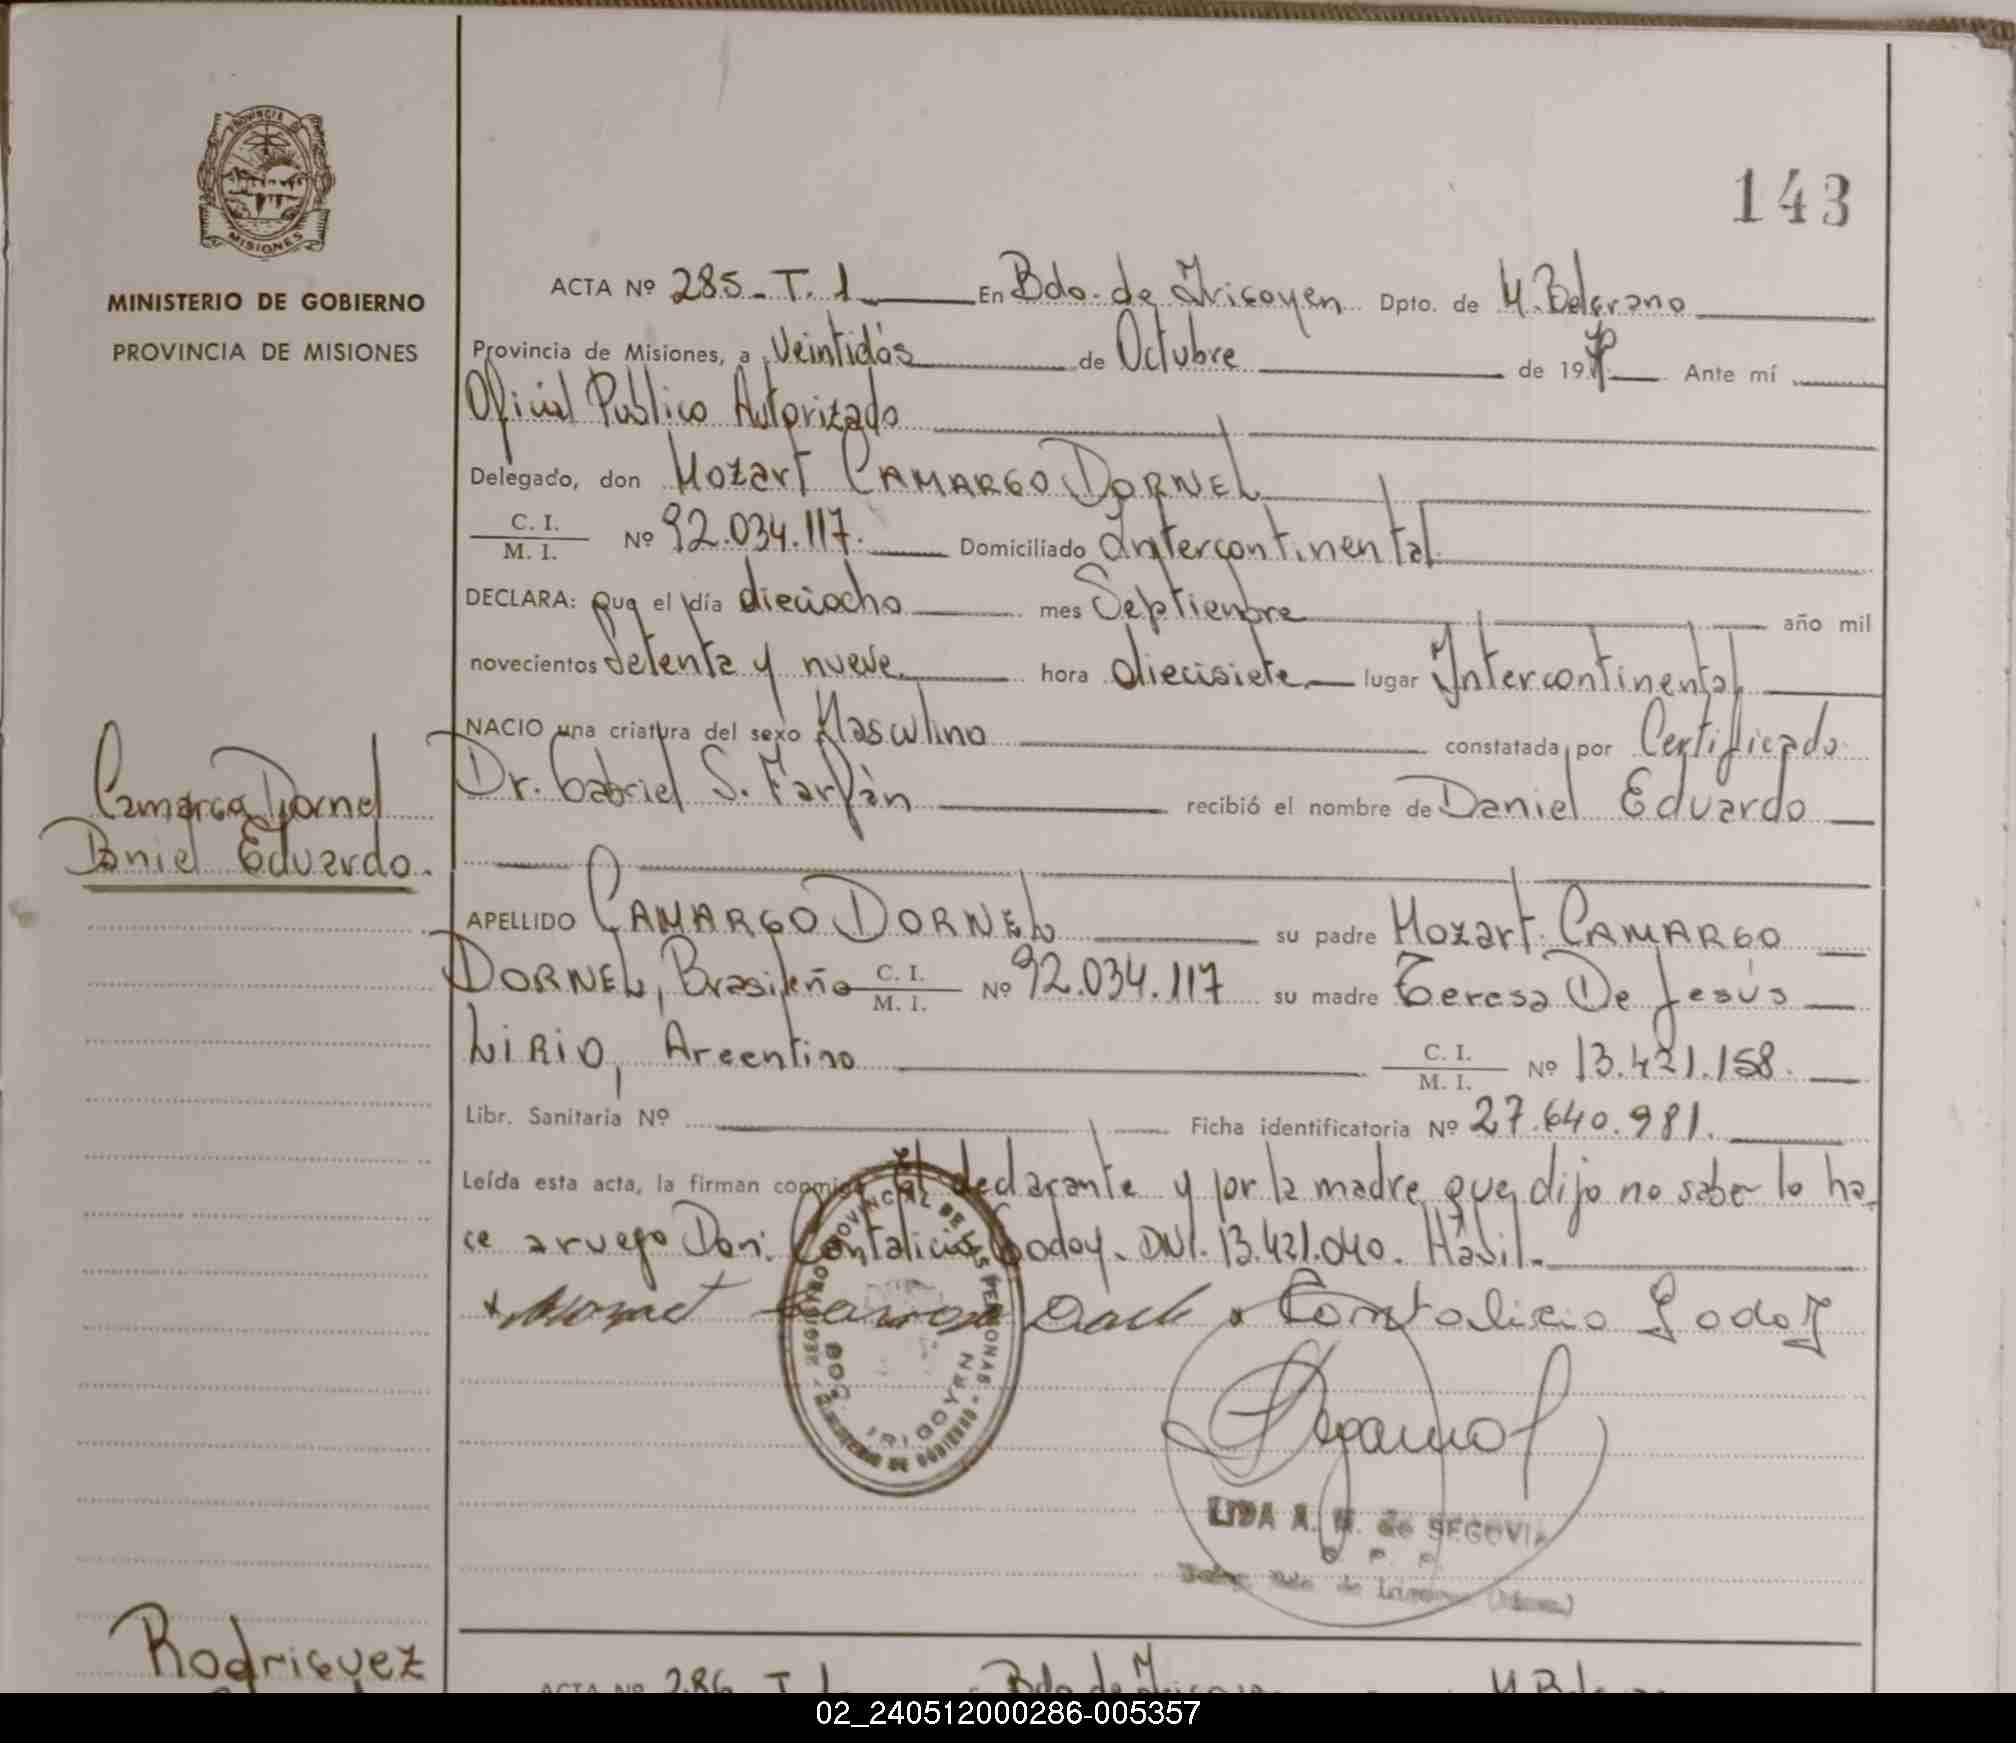 143
PROVINCIA DE
MISIONES
MINISTERIO DE GOBIERNO
PROVINCIA DE MISIONES
ACTA Nº 285 - T. 1 En Bdo. de Irigoyen Dpto. de M. Belgrano
Provincia de Misiones, a Veintidós de Octubre de 19 Ante mí
Oficial Publico Autorizado
Delegado, don Mozart CAMARGO DORNEL
C. I.
M. I. Nº 92.034.117. Domiciliado Intercontinental
DECLARA: que el día dieciocho mes Septienbre año mil
novecientos Setenta y nueve hora diecisiete lugar Intercontinental
NACIO una criatura del sexo Masculino constatada por Certificado
Dr. Gabriel S. Farfán recibió el nombre de Daniel Eduardo
Camargo Dornel
Daniel Eduardo.
APELLIDO CAMARGO DORNEL su padre Mozart CAMARGO
DORNEL, Brasileño C. I. M. I. Nº 92.034.117 su madre Teresa De Jesús
LIRIO, Argentino C. I. M. I. Nº 13.421.158.
Libr. Sanitaria Nº Ficha identificatoria Nº 27.640.981.
Leída esta acta, la firman conmigo el declarante y por la madre que dijo no saber lo ha-
ce a ruego Don: Contalicio Godoy. DNI. 13.421.040. Hábil.
Contalicio Godoy
REGISTRO PROVINCIAL DE LAS PERSONAS
MINISTERIO DE GOBIERNO
BDO. IRIGOYEN
LIDA A. de SEGOVIA
Rodriguez
ACTA Nº 286 - T. 1 Bdo. de Irigoyen M. Belgrano
02_240512000286-005357